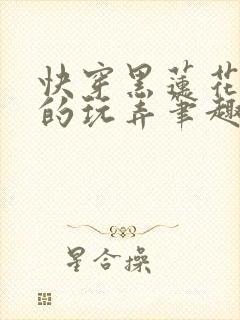 快穿黑莲花
的玩弄笔趣
星合操